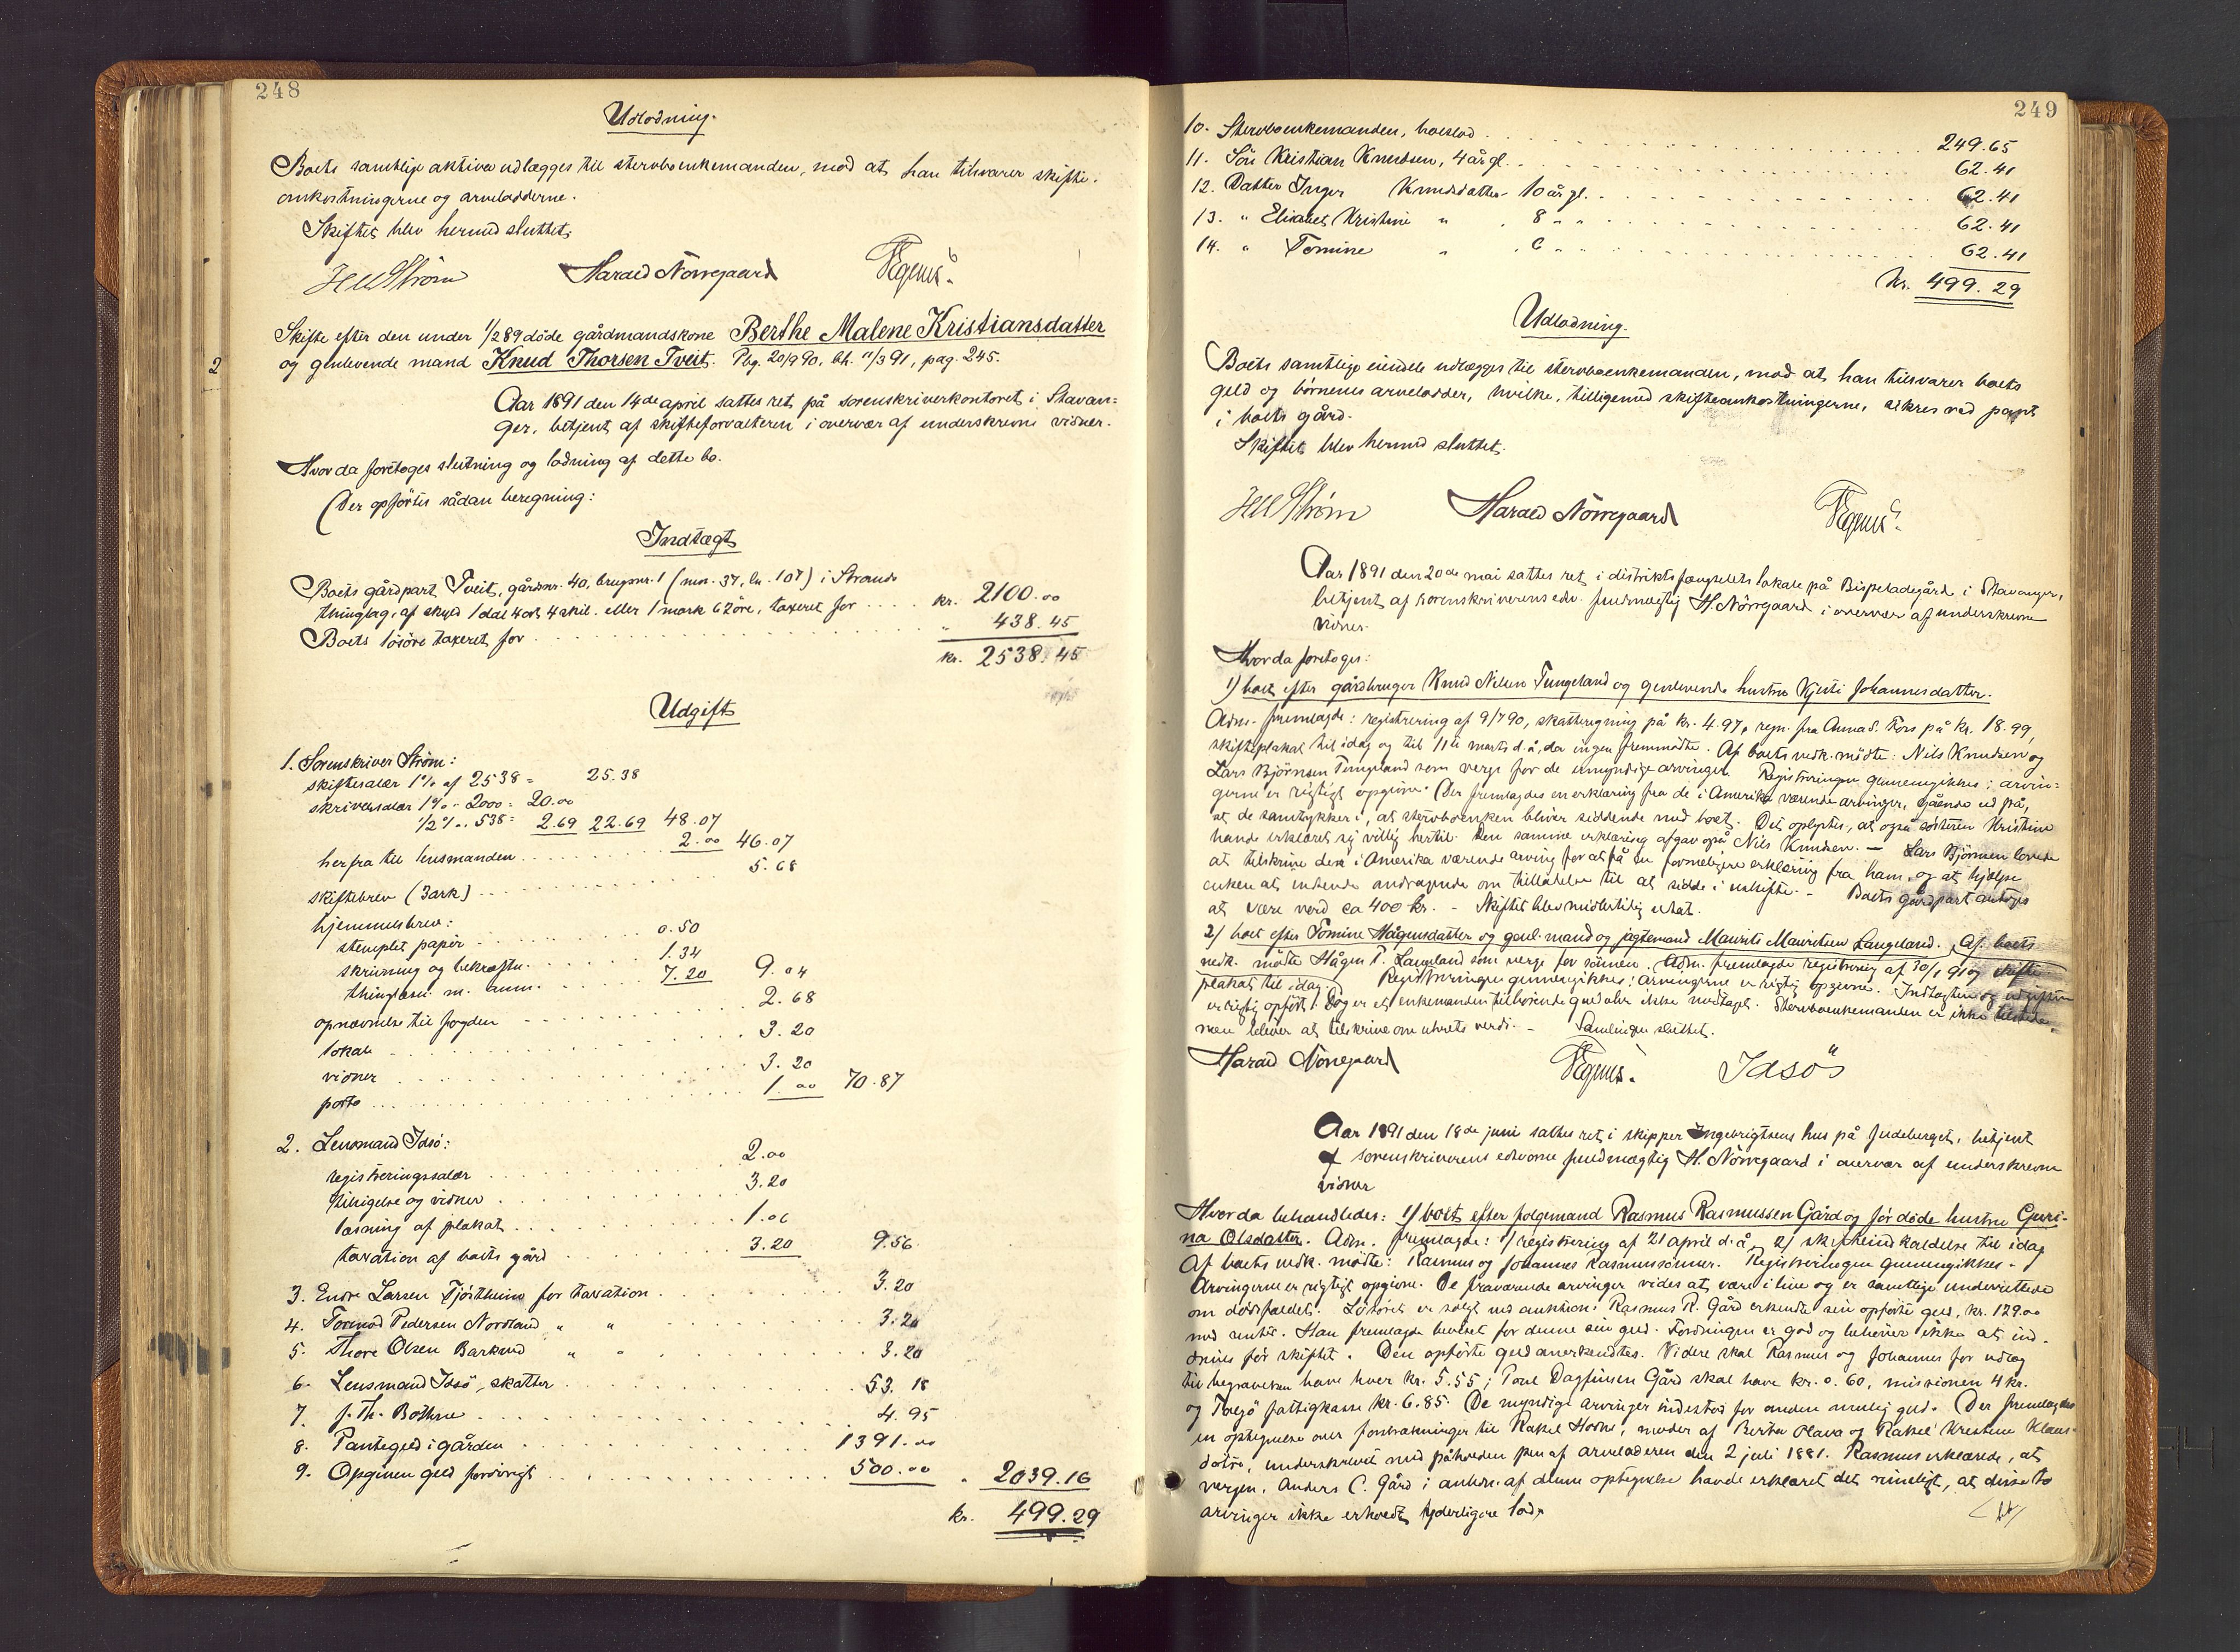 248
Udlodning.
Boets samtlige aktiva udlægges til stervboenkemanden, mod at han tilsvarer skifte-
omkostningerne og arvelodderne.
Skiftet blev hermed sluttet.
Strøm Harald Nörregaard
Skifte efter den under 1/2 89 döde gårdmandskone Berthe Malene Kristiansdatter
2 og gjenlevende mand Knud Thorsen Tveit. Pbg. 20/9 90, bh. 11/3 91, pag. 245.
Aar 1891 den 14de april sattes ret på sorenskriverkontoret i Stavan=
ger, betjent af skifteforvalteren i overvær af underskrevne vidner.
Hvorda foretoges slutning og lodning af dette bo.
Der opförtes sådan beregning:
Indtægt
Boets gårdpart Tveit, gårdsnr. 40, brugsnr. 1 (mn. 37, ln. 107) i Strands
thinglag, af skyld 1 dal. 4 ort 4 skil. eller 1 mark 62 öre, taxeret for . . . . kr. 2100.00
Boets lösöre taxeret for . . . . " 438.45
kr. 2538.45
Udgift
1. Sorenskriver Ström:
skiftesalær 1% af 2538 = 25.38
skriversalær 1% " 2000 = 20.00
1/2% " 538 = 2.69 22.69 48.07
herfra til lensmanden . . . . 2.00 46.07
skiftebrev (3 ark) . . . . 5.68
hjemmelsbrev:
stemplet papir . . . . 0.50
skrivning og bekræftn. . . . . 1.34
thinglæsn. m. anm. . . . . 7.20 9.04
opnævnelse til fogden . . . . 2.68
lokale . . . . 3.20
vidner . . . . 3.20
porto . . . . 1.00 70.87
2. Lensmand Idsö:
registreringssalær . . . . 2.00
tilsigelse og vidner . . . . 3.20
læsning af plakat . . . .
taxation af boets gård . . . . 3.20 9.56
3. Endre Larsen Tjöstheim for taxation . . . . 3.20
4. Tormod Pedersen Nordland " " . . . . 3.20
5. Thore Olsen Barkved " " . . . . 3.20
6. Lensmand Idsö, skatter . . . . 53.18
7. J. Th. Böthun . . . . 4.95
8. Pantegjeld i gården . . . . 1391.00
9. Opgiven gjeld forövrigt . . . . 500.00 " 2039.16
kr. 499.29
249
10. Stervboenkemanden, boeslod . . . . 249.65
11. Sön Kristian Knudsen, 4 år gl. . . . . 62.41
12. Datter Inger Knudsdatter 10 år gl. . . . . 62.41
13. " Elisabet Kristine " 8 " " . . . . 62.41
14. " Tomine " 6 " . . . . 62.41
Kr. 499.29
Udlodning.
Boets samtlige eiendele udlægges til stervboenkemanden, mod at han tilsvarer boets
gjeld og börnenes arvelodder, hvilke, tilligemed skifteomkostningerne, sikres ved pant
i boets gård.
Skiftet blev hermed sluttet.
Strøm Harald Nörregaard
Aar 1891 den 20de mai sattes ret i distriktsfængselets lokale på Bispeladegård i Stavanger,
betjent af sorenskriverens edsv. fuldmægtig H. Nörregaard i overvær af underskrevne
vidner.
Hvorda foretoges:
1) boet efter gårdbruger Knud Nilsen Tungeland og gjenlevende hustru Kjersti Johannesdatter.
Adm. fremlagde: registrering af 9/7 90, skatteregning på kr. 4.97, regn. fra Anna S. Fors på kr. 18.99,
skifteplakat til idag og til 11te marts d. å, da ingen fremmödte. Af boets vedk. mödte: Nils Knudsen og
Lars Björnsen Tungeland som verge for de umyndige arvinger. Registreringen gjennemgikkes; arvin=
gerne er rigtigt opgivne. Der fremlagdes en erklæring fra de i Amerika værende arvinger, gående ud på,
at de samtykker i, at stervboenken bliver siddende med boet. Det oplystes, at også datteren Kristine
havde erklæret sig villig hertil. Den samme erklæring afgav også Nils Knudsen. — Lars Björnsen lovede
at tilskrive den i Amerika værende arving for at få en formeligere erklæring fra ham, og at hjælpe
enken at indsende andragende om tilladelse til at sidde i uskifte. - Boets gårdpart antoges
at være værd ca 400 kr. - Skiftet blev midlertidig udsat.
2) boet efter Tomine Hågensdatter og gjenl. mand og jægtemand Mauritz Mauritzen Langeland. Af boets
vedk. mödte Hågen T. Langeland som verge for sönnen. Adm. fremlagde registrering af 30/1 91 og skifte-
plakat til idag. Registreringen gjennemgikkes: Arvingerne er rigtig opgivne. Indtægten og udgiften
er rigtig opfört. Dog er et enkemanden tilhörende guldur ikke medtaget. Stervboenkemanden er ikke tilstede,
men bliver at tilskrive om uhrets verdi. - Samlingen sluttet.
Harald Nörregaard Idsö
Aar 1891 den 18de juni sattes ret i skipper Ingebrigtsens hus på Judeberget, betjent
af sorenskriverens edsvorne fuldmægtig H. Nörregaard i overvær af underskrevne
vidner
Hvorda behandledes: 1) boet efter folgemand Rasmus Rasmussen Gård og för döde hustru Guri-
na Olsdatter. Adm. fremlagde: 1) registrering af 21 april d. å, 2) skifteindkaldelse til idag
Af boets vedk. mödte: Rasmus og Johannes Rasmussönner. Registreringen gjennemgikkes.
Arvingerne er rigtigt opgivne. De fraværende arvinger vides at være i live og er samtlige underrettede
om dödsfaldet. Lösöret er solgt ved auktion. Rasmus R. Gård erkendte sin opförte gjeld, kr. 129.00
med renter. Han fremlagde beviset for denne sin gjeld. Fordringen er god og behöver ikke at ind-
drives för skiftet. Den opförte gjeld anerkendtes. Videre skal Rasmus og Johannes for udlæg
til begravelsen have hver kr. 5.55; Poul Dagfinsen Gård skal have kr. 0.60, missionen 4 kr.
og Talgö fattigkasse kr. 6.85. De myndige arvinger indestod for anden mulig gjeld. Der fremlagdes
en optegnelse over forstrækninger til Rakel Hodne, moder af Berta Olava og Rakel Kristine Klaus-
dötre, underskrevet med påholden pen af arveladeren den 2 juli 1881. Rasmus erklærede, at
vergen, Anders C. Gård i anledn. af denne optegnelse havde erklæret det rimeligt, at disse to
arvinger ikke erholdt yderligere lod.